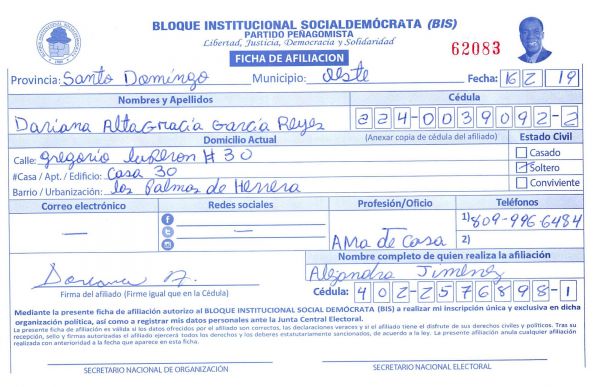 BLOQUE INSTITUCIONAL SOCIALDEMÓCRATA (BIS)
PARTIDO PEÑAGOMISTA
Libertad, Justicia, Democracia y Solidaridad
FICHA DE AFILIACION
62083
Provincia: Santo Domingo Municipio: Oeste Fecha: 16 2 19
Nombres y Apellidos Cédula
Dariana Altagracia García Reyes 224-0039092-2
Domicilio Actual (Anexar copia de cédula del afiliado) Estado Civil
Calle: gregorio luperon # 30 Casado
#Casa / Apt. / Edificio: Casa 30 Soltero
Barrio / Urbanización: los Palmas de Herrera Conviviente
Correo electrónico Redes sociales Profesión/Oficio Teléfonos
1) 809-996-6484
— — AMa de Casa 2)
Nombre completo de quien realiza la afiliación
Alejandra Jiménez
Firma del afiliado (Firme igual que en la Cédula) Cédula: 402-2576898-1
Mediante la presente ficha de afiliación autorizo al BLOQUE INSTITUCIONAL SOCIAL DEMÓCRATA (BIS) a realizar mi inscripción única y exclusiva en dicha
organización política, así como a registrar mis datos personales ante la Junta Central Electoral.
La presente ficha de afiliación es válida si los datos ofrecidos por el afiliado son correctos, las declaraciones veraces y si el afiliado tiene el disfrute de sus derechos civiles y políticos. Tras su
recepción, sello y firmas autorizadas el afiliado ejercerá todos los derechos y los deberes estatutariamente sancionados, de acuerdo a la ley. La presente afiliación anula cualquier afiliación
realizada con anterioridad a la fecha que aparece en esta ficha.
SECRETARIO NACIONAL DE ORGANIZACIÓN SECRETARIO NACIONAL ELECTORAL